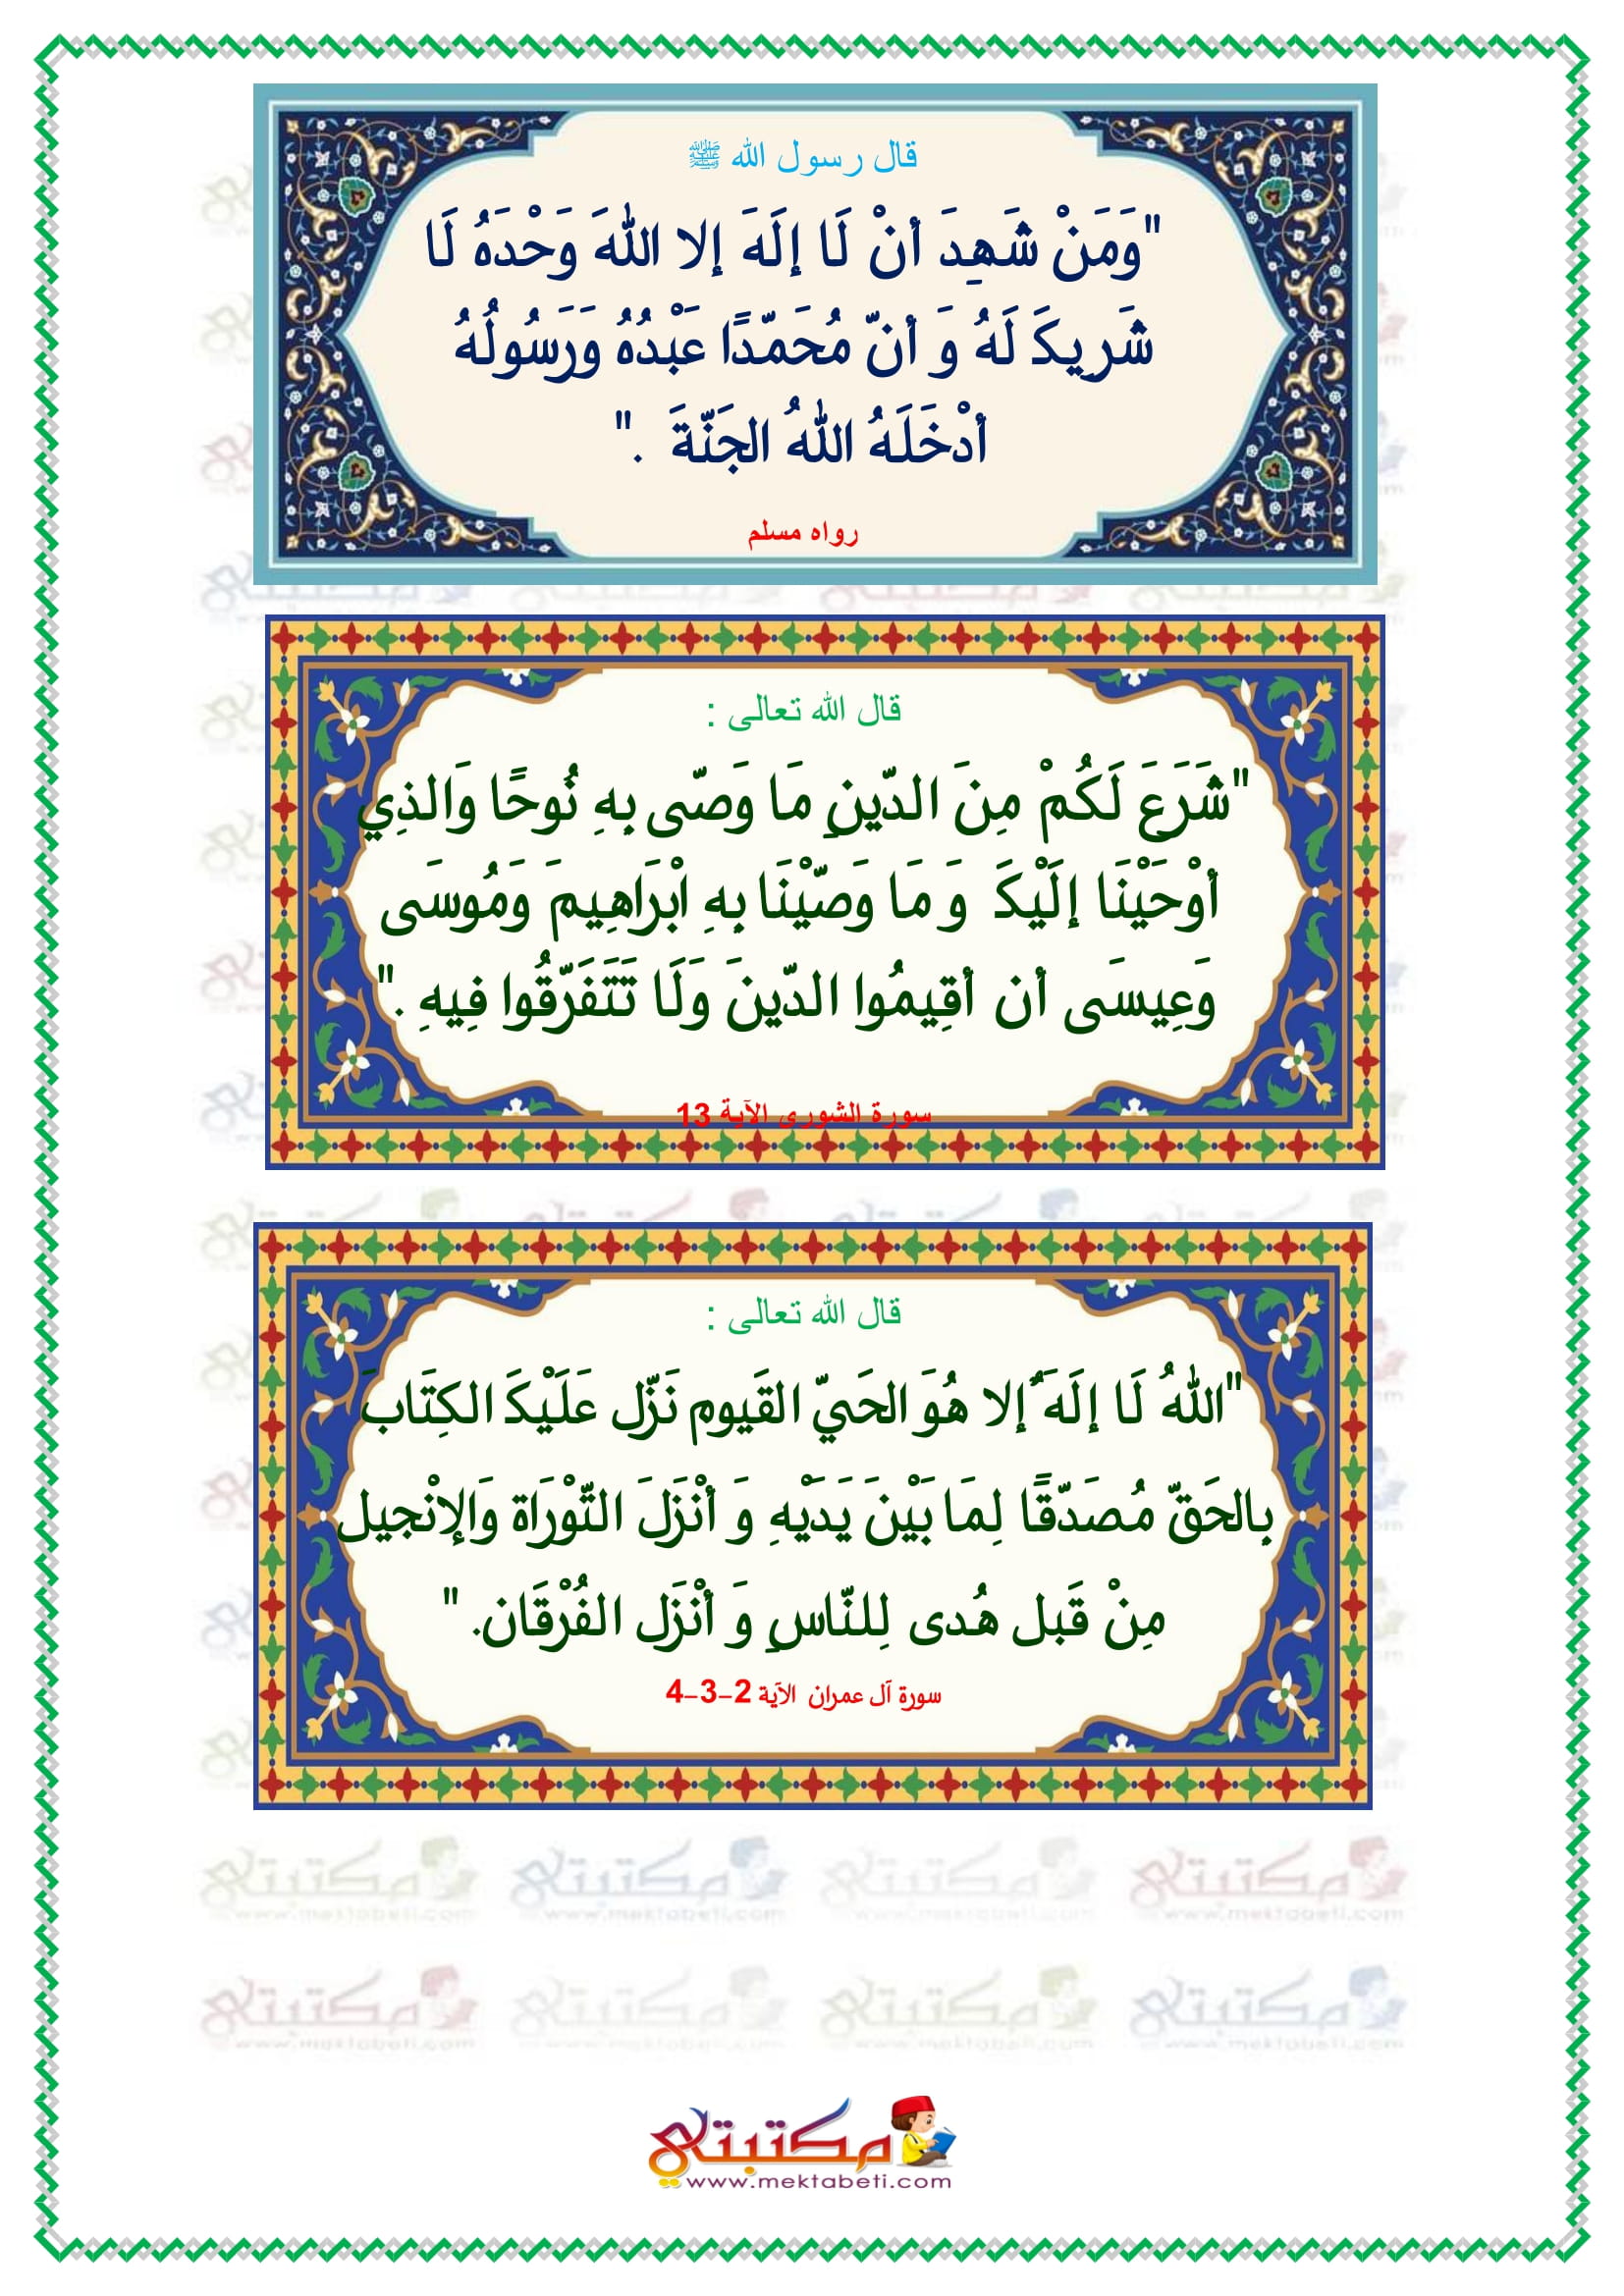 قال رسول الله ﷺ
"وَمَنْ شَهِدَ أنْ لَا إلَهَ إلا اللهَ وَحْدَهُ لَا
شَرِيكَ لَهُ وَ أنّ مُحَمّدًا عَبْدُهُ وَرَسُولُهُ
أدْخَلَهُ اللهُ الجَنّةَ ."
رواه مسلم
قال الله تعالى :
"شَرَعَ لَكُمْ مِنَ الدّينِ مَا وَصّى بِهِ نُوحًا وَالذِي
أوْحَيْنَا إلَيْكَ وَ مَا وَصّيْنَا بِهِ ابْرَاهِيمَ وَمُوسَى
وَعِيسَى أن أقِيمُوا الدّينَ وَلَا تَتَفَرّقُوا فِيهِ ."
سورة الشورى الآية 13
قال الله تعالى :
"اللهُ لَا إلَهَ ُإلا هُوَ الحَيّ القَيوم نَزّل عَلَيْكَ الكِتَابَ
بِالحَقّ مُصَدّقًا لِمَا بَيْنَ يَدَيْهِ وَ أنْزَلَ التّوْرَاة وَالإنْجيل
مِنْ قَبل هُدى لِلنّاسِ وَ أنْزَل الفُرْقَان. "
سورة آل عمران الآية 2-3-4
مكتبتي
www.mektabeti.com